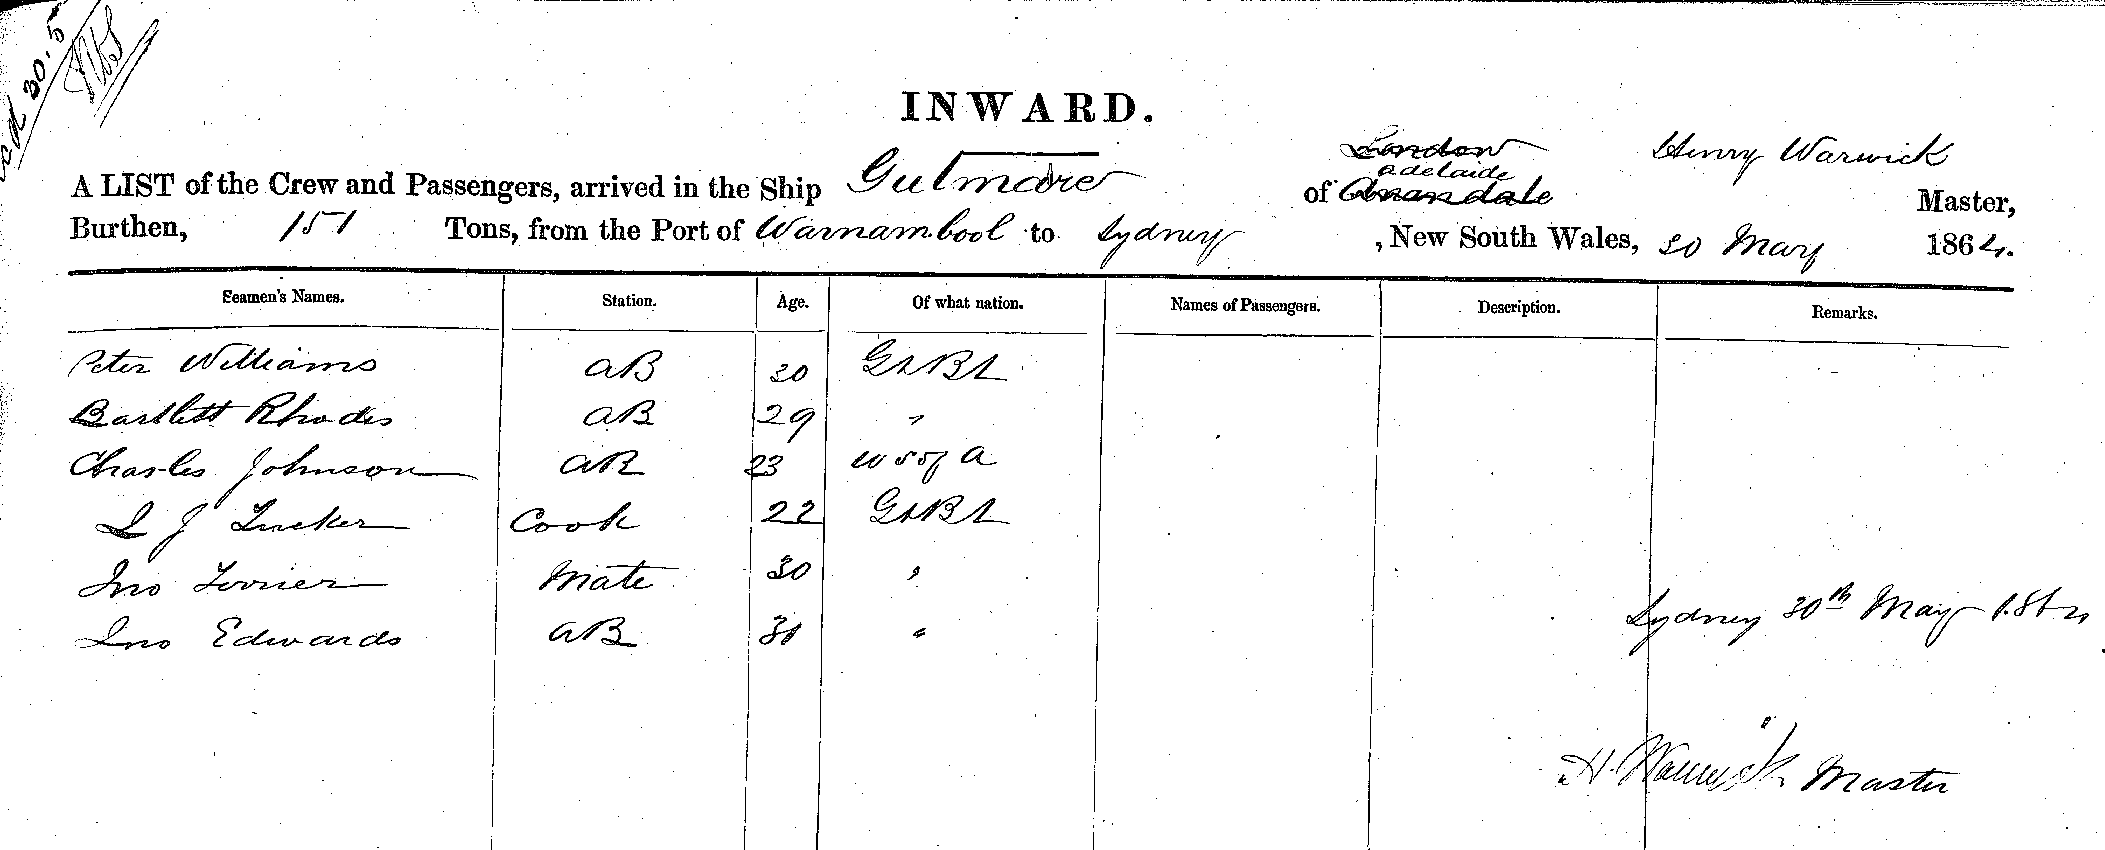 30.5
INWARD.
London
Henry Warwick
A LIST of the Crew and Passengers, arrived in the Ship
adelaide
of Anandale
Master,
Burthen, 151 Tons, from the Port of Warnambool to Sydney, New South Wales, 30 May 1864.
Seamen's Names. Station. Age. Of what nation. Names of Passengers. Description. Remarks.
Peter Williams AB 30 Gt Bt
Bartlett Rhodes AB 29 "
Charles Johnson AB 23 U S of A
J Tucker Cook 22 Gt Bt
Jno Mate 30 "
Jno Edwards AB 30 "
Sydney 30th May 1864
H. Warwick Master